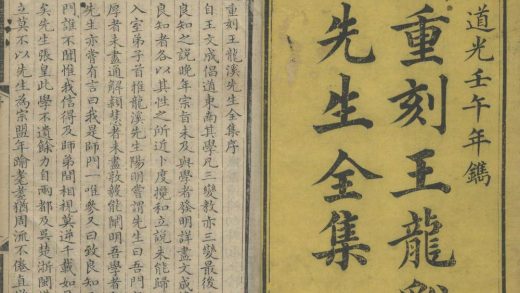 道光壬午年鐫
重刻王龍
先生全集
重刻王龍溪先生全集序
自王文成倡道東南其學凡三變教亦三變最後
良知之說晚年宗旨未及與學者發明詳盡文成
良知者各以其性之所近卜度攙和立說未能歸
入室弟子首推龍溪先生陽明嘗謂先生曰吾門
厚者未盡通解穎慧者未盡敦毅能闡明吾學者
先生亦嘗有言曰我是師門一唯參又曰致良知
門誰不聞惟我信得及師弟間相視莫逆千載如
矣先生張皇此學不遺餘力自兩都及吳楚浙閩
立莫不以先生為宗盟年踰耄耋猶周流不倦直